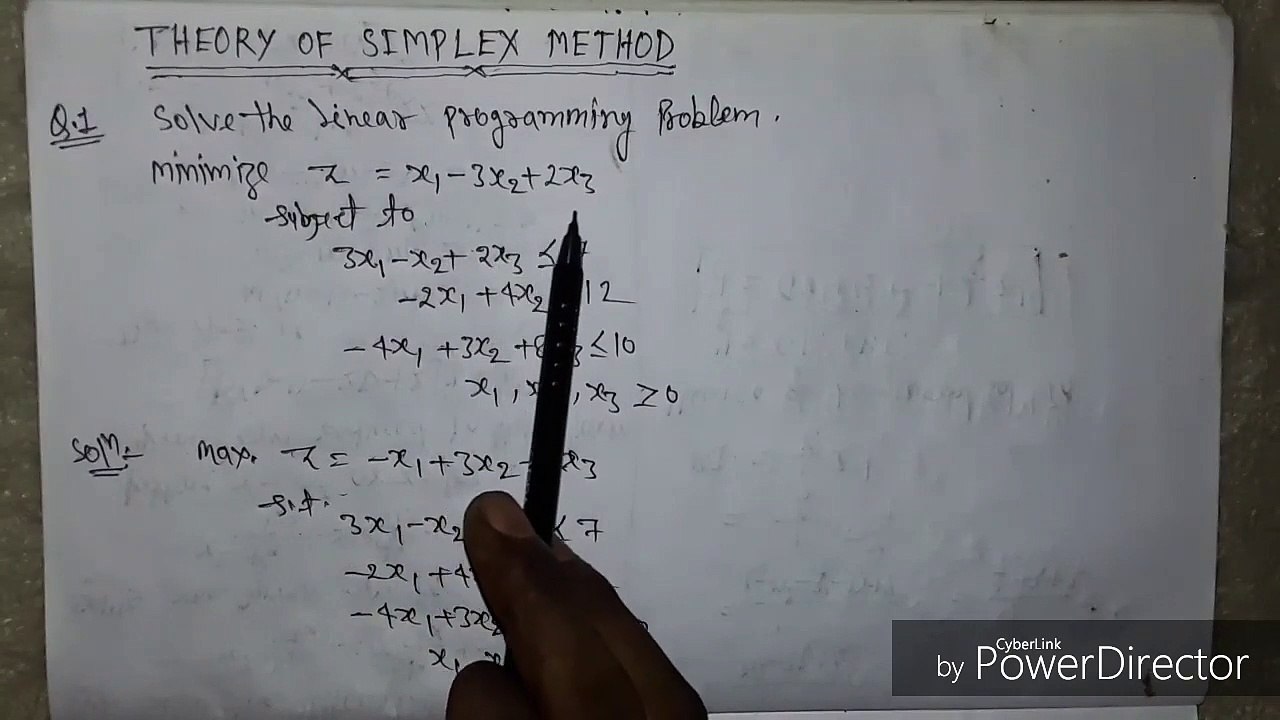 THEORY OF SIMPLEX METHOD
Q.1 Solve the linear programming Problem.
minimize z = x₁ - 3x₂ + 2x₃
subject to
3x₁ - x₂ + 2x₃ ≤ 7
-2x₁ + 4x₂ 12
-4x₁ + 3x₂ + 8x₃ ≤ 10
x₁, x₂, x₃ ≥ 0
Soln:- Max. z = -x₁ + 3x₂ - x₃
s.t.
3x₁ - x₂ ≤ 7
-2x₁ + 4
-4x₁ + 3x₂
x₁
CyberLink
by PowerDirector